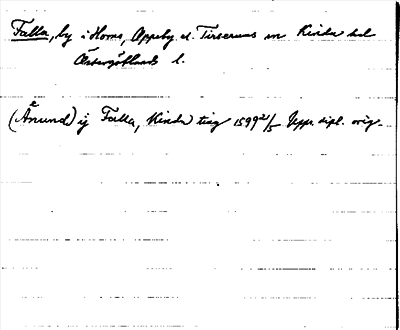 Falla, by i Horns, Oppeby el. Tirserums sn Kinda hd
Östergötlands l.
(Ånund) ij Falla, Kinda ting 1599 2/5 Upps. dipl. orig.